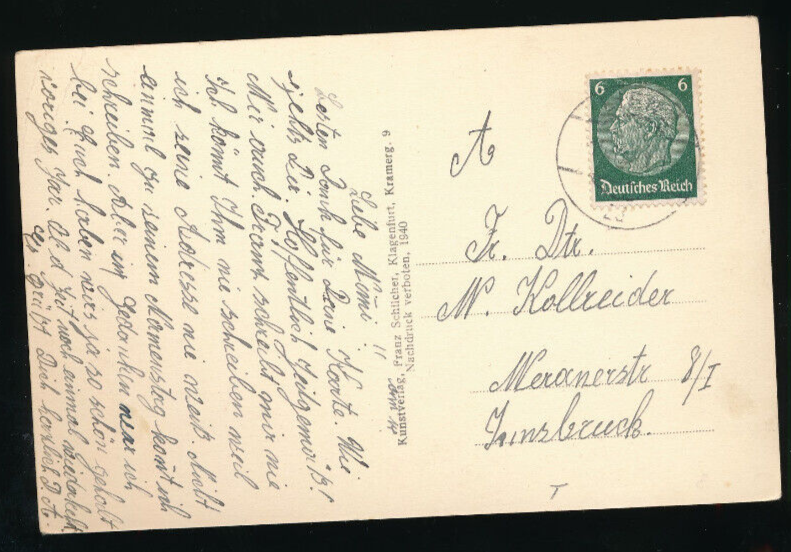 Liebe Mimi!
Besten Dank für Deine Karte. Wie
gehts Dir. Hoffentlich Zeitgemäß!
Mir auch. Franz schreibt mir nie
Ich könnt Ihm nie schreiben weil
ich seine Adresse nie weiß. Nicht
einmal zu seinem Namenstag konnt ich
schreiben. Aber in Gedanken war ich
bei Euch haben wirs ja so schön gehabt
voriges Jar. Ob d Zeit noch einmal wiederkehrt
Es grüßt Dich herzlich D. A.
Kunstverlag, Franz Schilcher, Klagenfurt, Kramerg. 9
Nachdruck verboten, 1940
6 6
Deutsches Reich
23
A
Fr. Dtr.
M. Kollreider
Meranerstr 8/I
Innsbruck.